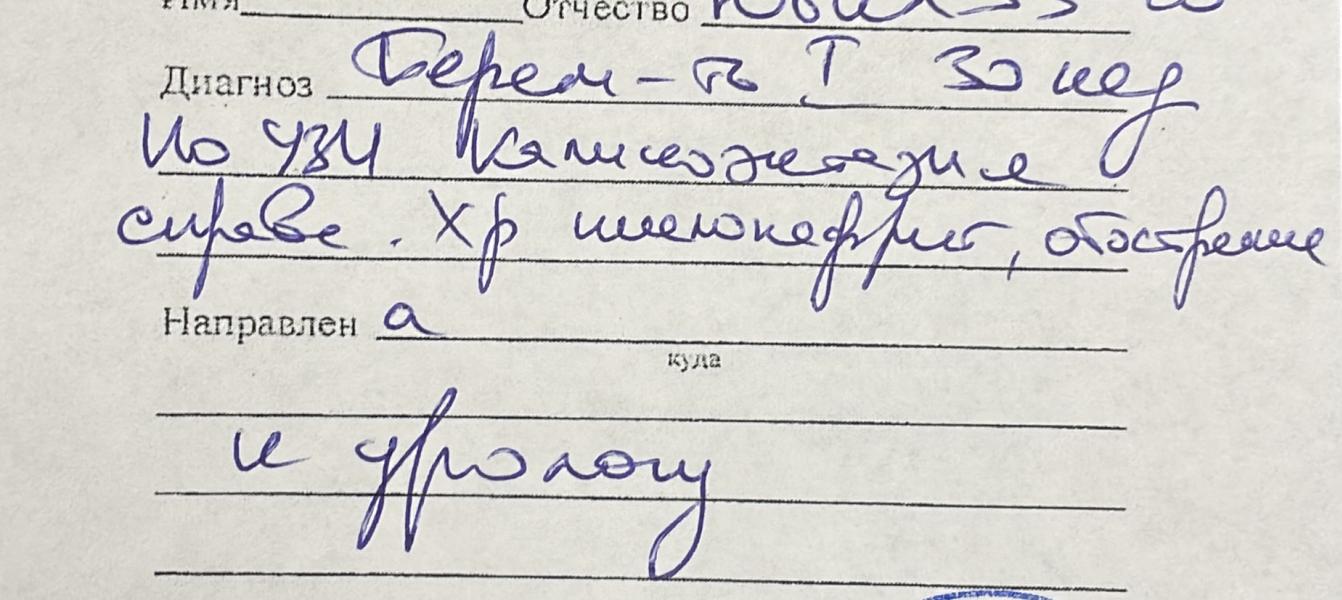 Имя Отчество
Диагноз Берем-ть I 30 нед
По УЗИ Каликоэктазия
справа. Хр пиелонефрит, обострение
Направлен а
куда
к урологу